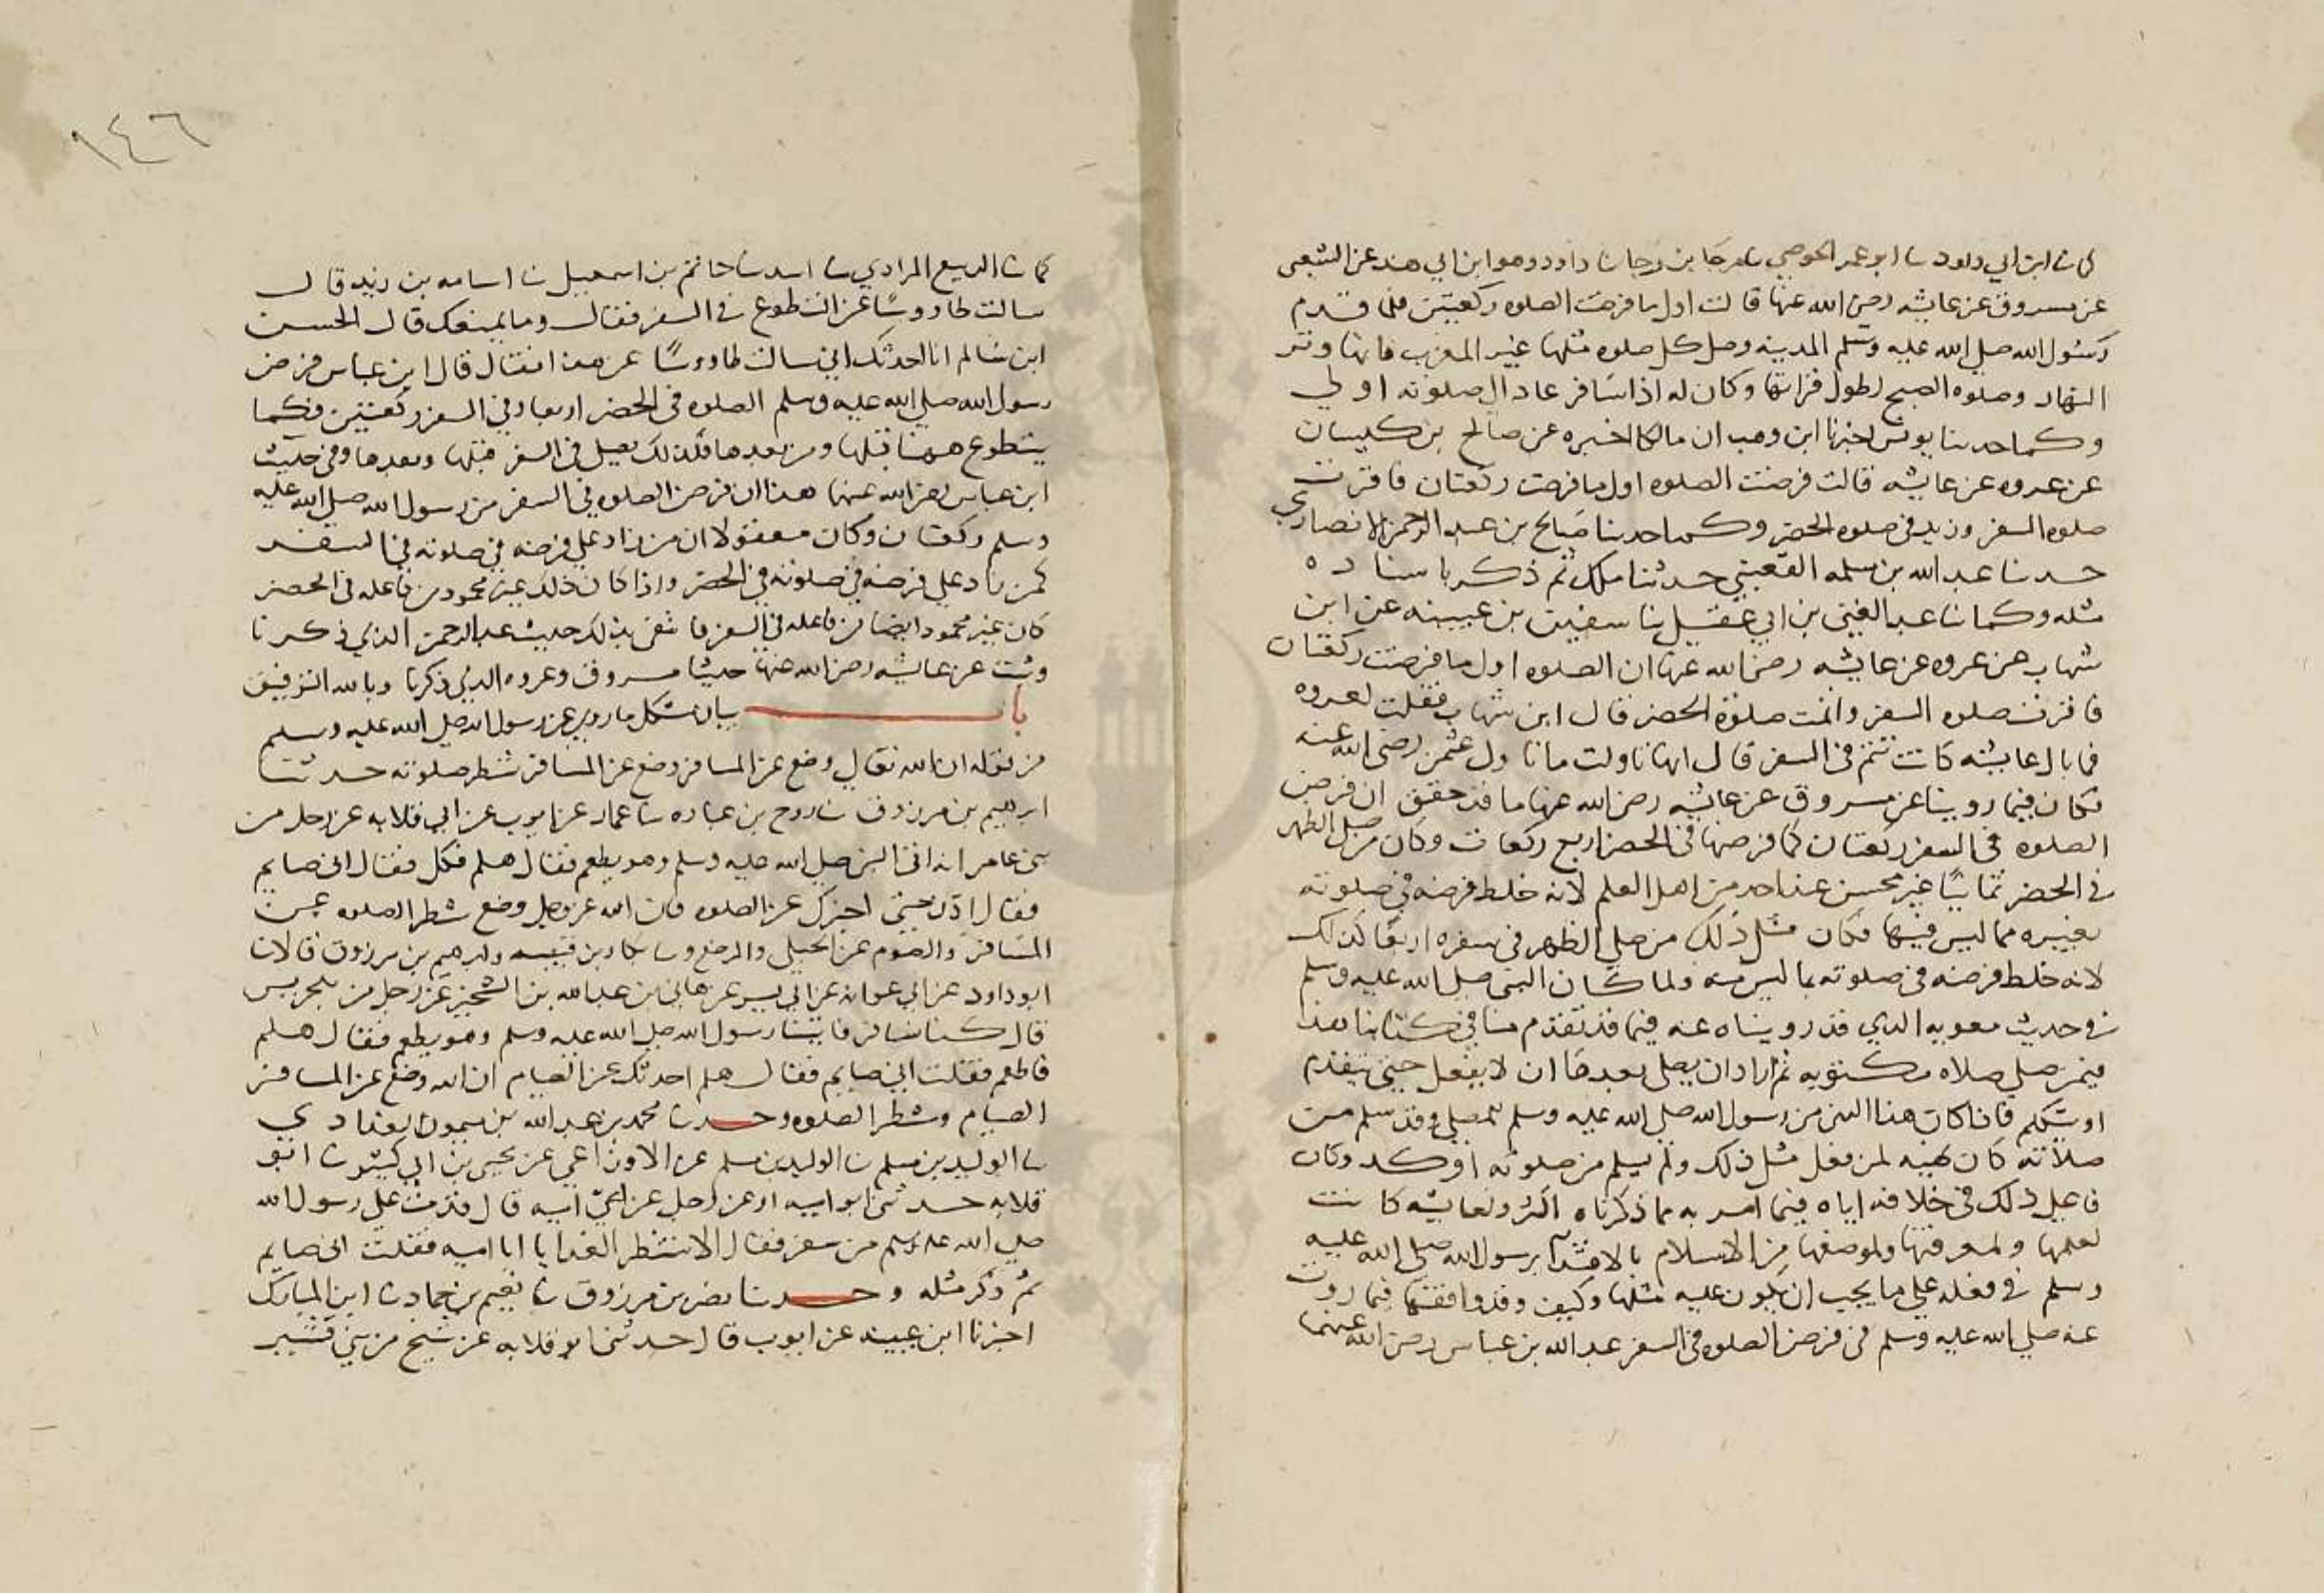 كما نا ابن ابي داود نا ابو عمر الحوضي نا مرجا بن رجا نا داود وهو ابن ابي هند عن الشعبي
عن مسروق عن عايشه رضي الله عنها قالت اول ما فرضت الصلوه ركعتين فلما قدم
رسول الله صلي الله عليه وسلم المدينه وصل كل صلوه مثلها غير المغرب فانها وتر
النهار وصلوه الصبح لطول قراتها وكان له اذا سافر عاد الي صلوته اولي
وكما حدثنا يونس اخبرنا ابن وهب ان مالكا اخبره عن صالح بن كيسان
عن عروه عن عايشه قالت فرضت الصلوه اول ما فرضت ركعتان فاقرت
صلوه السفر وزيد في صلوه الحضر وكما حدثنا صالح بن عبد الرحمن الانصاري
حدثنا عبد الله بن مسلمه القعنبي حدثنا ملك ثم ذكر باسناده
مثله وكما نا عبد الغني بن ابي عقيل نا سفين بن عيينه عن ابن
شهاب عن عروه عن عايشه رضي الله عنها ان الصلوه اول ما فرضت ركعتان
فاقرت صلوه السفر واتمت صلوة الحضر قال ابن شهاب فقلت لعروه
فما بال عايشه كانت تتم في السفر قال انها تاولت ما تاول عثمن رضي الله عنه
فكان فيما روينا عن مسروق عن عايشه رضي الله عنها ما قد حقق ان فرض
الصلوه في السفر ركعتان كما فرضها في الحضر اربع ركعات وكان من صلي الظهر
في الحضر ثمانيًا غير محسن عند احد من اهل العلم لانه خلط فرضه في صلوته
بغيره مما ليس فيها فكان مثل ذلك من صلي الظهر في سفره اربعًا كذلك
لانه خلط فرضه في صلوته بما ليس منه ولما كان النبي صلي الله عليه وسلم
في حديث معويه الذي قد رويناه عنه فيما قد تقدم منا في كتابنا هذا
فيمن صلي صلاه مكتوبه ثم اراد ان يصلي بعدها ان لا يفعل حتي يتقدم
او يتكلم فاذا كان هذا النهي من رسول الله صلي الله عليه وسلم لمصلي وقد سلم من
صلاته كان نهيه لمن فعل مثل ذلك ولم يسلم من صلوته اوكد وكان
فاعل ذلك في خلافه اياه فيما امر به مما ذكرناه اكثر ولعايشه كانت
لعلمها ولمعرفتها ولموضعها من الاسلام بالاقتدآ برسول الله صلي الله عليه
وسلم في فعله علي ما يجب ان يكون عليه مثلها وكيف وقد وافقها فيما روت
عنه صلي الله عليه وسلم في فرض الصلوه في السفر عبد الله بن عباس رضي الله عنهما
١٤٦
كما نا الربيع المرادي نا اسد نا حاتم بن اسمعيل نا اسامه بن زيد قال
سالت طاووسًا عن التطوع في السفر فقال وما يمنعك قال الحسن
ابن سالم انا احدثك اني سالت طاووسًا عن هذا فقال قال ابن عباس فرض
رسول الله صلي الله عليه وسلم الصلوه في الحضر اربعا وفي السفر ركعتين فكما
يتطوع ههنا قبلها ومن بعدها فكذلك يصلي في السفر قبلها وبعدها وفي حديث
ابن عباس رضي الله عنهما هذا ان فرض الصلوه في السفر من رسول الله صلي الله عليه
وسلم ركعتان وكان معقولا ان من زاد علي فرضه في صلوته في السفر
كمن زاد علي فرضه في صلوته في الحضر واذا كان ذلك غير محمود من فاعله في الحضر
كان غير محمود ايضا من فاعله في السفر فانتفي بذلك حديث عبد الرحمن الذي ذكرنا
وثبت عن عايشه رضي الله عنها حديثا مسروق وعروه الذي ذكرنا وبالله التوفيق
باب بيان مشكل ما روي عن رسول الله صلي الله عليه وسلم
من قوله ان الله تعالي وضع عن المسافر وضع عن المسافر شطر صلوته حدثنا
ابرهيم بن مرزوق نا روح بن عباده نا عماد عن ايوب عن ابي قلابه عن رجل من
بني عامر انه اتي النبي صلي الله عليه وسلم وهو يطعم فقال هلم فكل فقال اني صايم
فقال ادن حتي اخبرك عن الصلوه فان الله عز وجل وضع شطر الصلوه عن
المسافر والصوم عن الحبلي والمرضع ونا بكار بن قتيبه وابرهيم بن مرزوق قالا نا
ابو داود عن ابي عوانه عن ابي بسر عن هاني بن عبد الله بن الشخير عن رجل من بلحريس
قال كنا نسافر فاتينا رسول الله صلي الله عليه وسلم وهو يطعم فقال هلم
فاطعم فقلت اني صايم فقال هلم احدثك عن الصيام ان الله وضع عن المسافر
الصيام وشطر الصلوه وحدثنا محمد بن عبد الله بن ميمون البغدادي
نا الوليد بن مسلم نا الوليد بن مسلم عن الاوزاعي عن يحيي بن ابي كثير نا ابو
قلابه حدثني ابو اميه او عن رجل عن ابي اميه قال قدمت علي رسول الله
صلي الله عليه وسلم من سفر فقال الا تنتظر الغدا يا ابا اميه فقلت اني صايم
ثم ذكر مثله وحدثنا نصر بن مرزوق نا نعيم بن حماد نا ابن المبارك
اخبرنا ابن عيينه عن ايوب قال حدثني ابو قلابه عن شيخ من بني قشير